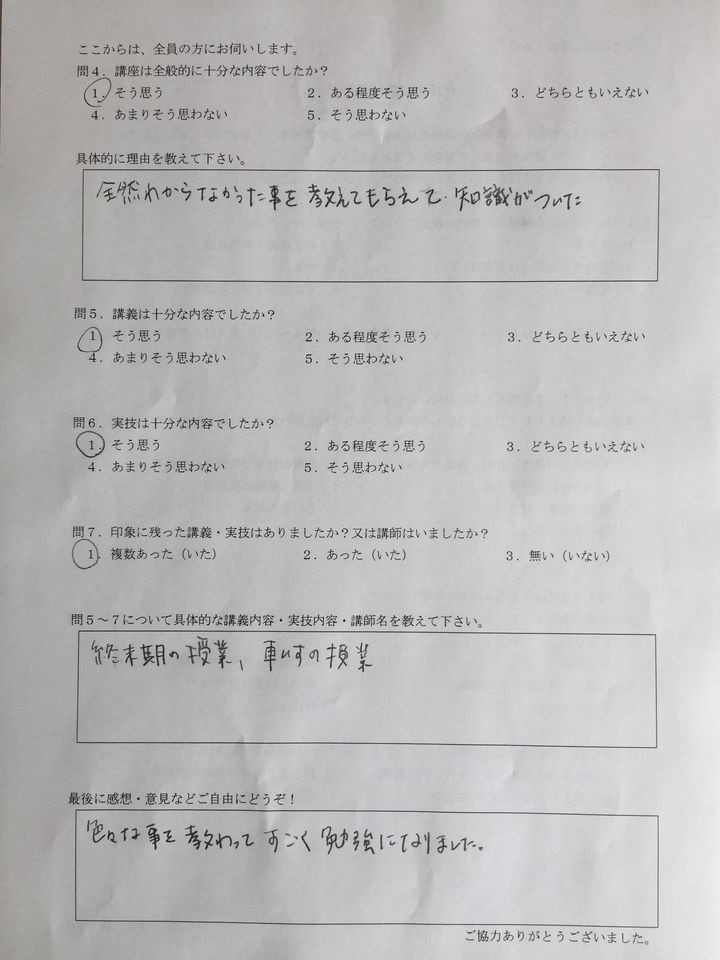 ここからは、全員の方にお伺いします。
問４．講座は全般的に十分な内容でしたか？
１．そう思う　２．ある程度そう思う　３．どちらともいえない
４．あまりそう思わない　５．そう思わない
具体的に理由を教えて下さい。
全然わからなかった事を教えてもらえて、知識がついた
問５．講義は十分な内容でしたか？
１　そう思う　２．ある程度そう思う　３．どちらともいえない
４．あまりそう思わない　５．そう思わない
問６．実技は十分な内容でしたか？
１．そう思う　２．ある程度そう思う　３．どちらともいえない
４．あまりそう思わない　５．そう思わない
問７．印象に残った講義・実技はありましたか？又は講師はいましたか？
１．複数あった（いた）　２．あった（いた）　３．無い（いない）
問５～７について具体的な講義内容・実技内容・講師名を教えて下さい。
終末期の授業、車いすの授業
最後に感想・意見などご自由にどうぞ！
色々な事を教わってすごく勉強になりました。
ご協力ありがとうございました。